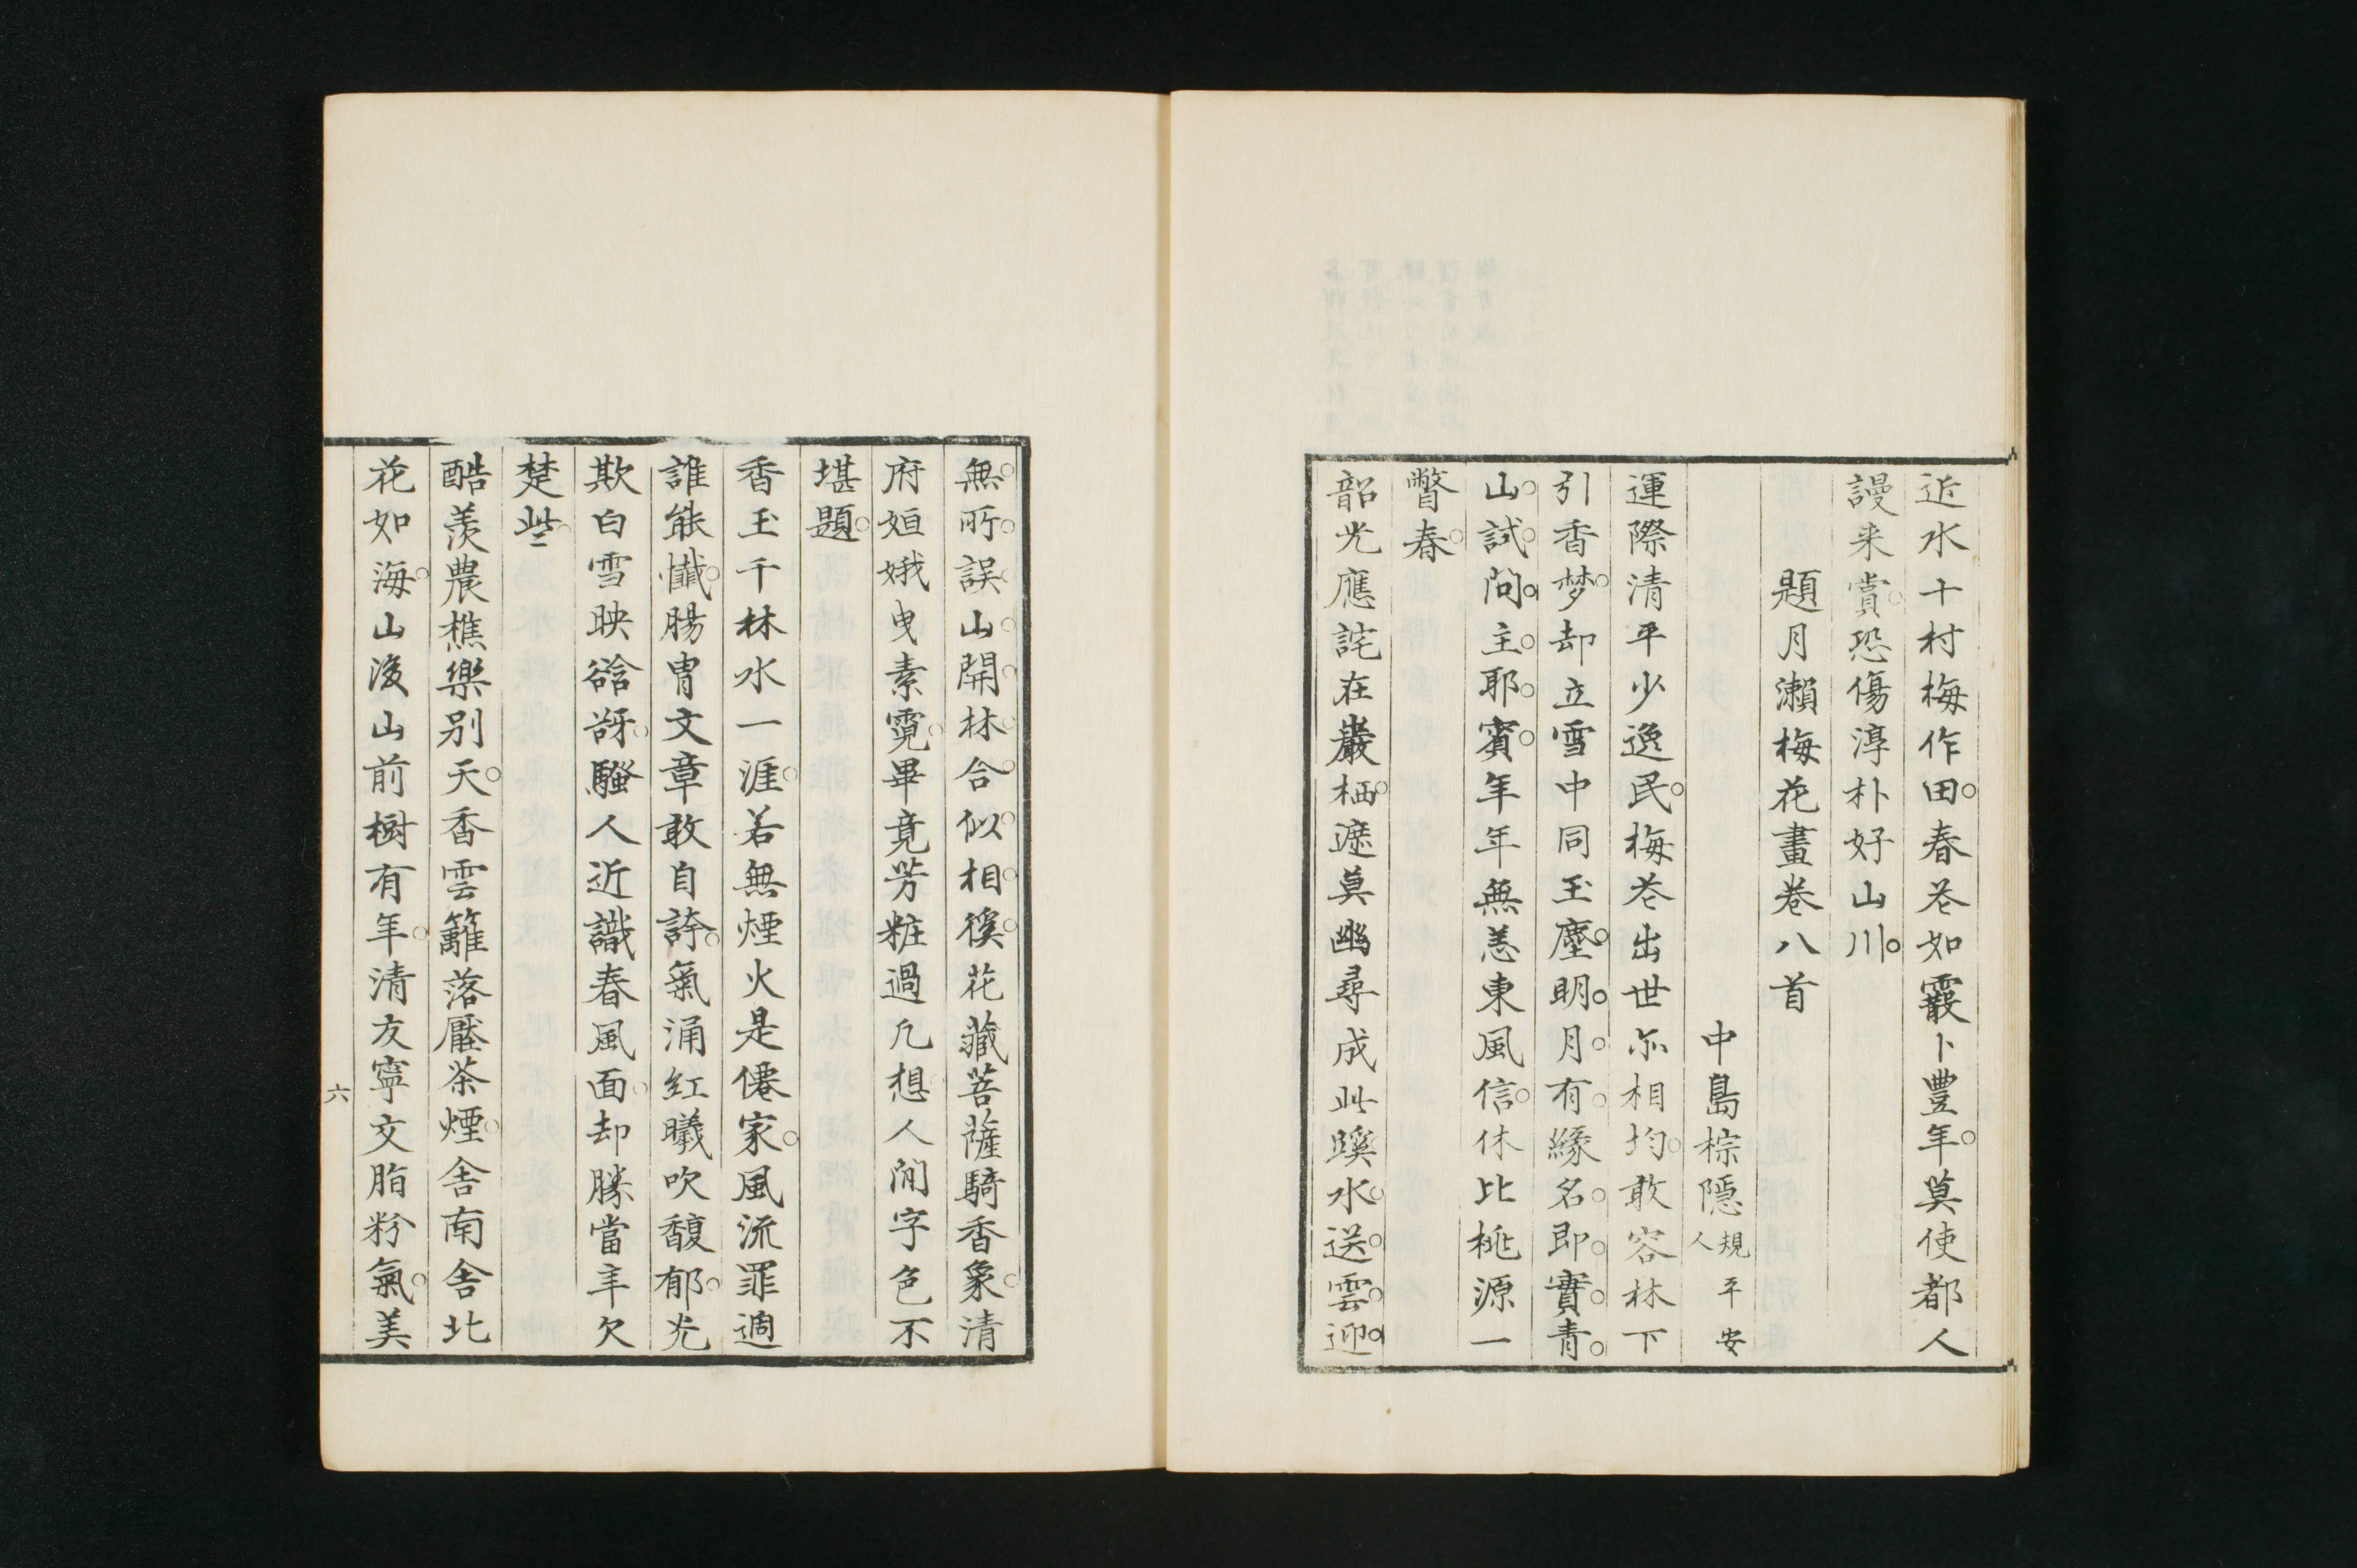 近水十村梅作田春花如霰卜豊年莫使都人
謾来賞恐傷淳朴好山川
題月瀬梅花畫巻八首
中島棕隠規平安人
運際清平少逸民梅花出世亦相均敢容林下
引香梦却立雪中同玉塵明月有緣名即實青
山試問主耶賓年年無恙東風信休比桃源一
瞥春
韶光應詫在巖栖遮莫幽尋成此蹊水送雲迎
無所誤山開林合似相徯花藏菩薩騎香象清
府姮娥曳素霓畢竟芳粧過凡想人間字色不
堪題
香玉千林水一涯若無煙火是僊家風流罪過
誰能懺腸胃文章敢自誇氣涌紅曦吹馥郁光
欺白雪映谽谺騷人近識春風面却勝當年欠
楚些
酷羨農樵樂別天香雲籬落壓茶煙舎南舎北
花如海山後山前樹有年清友寧文脂粉氣美
六